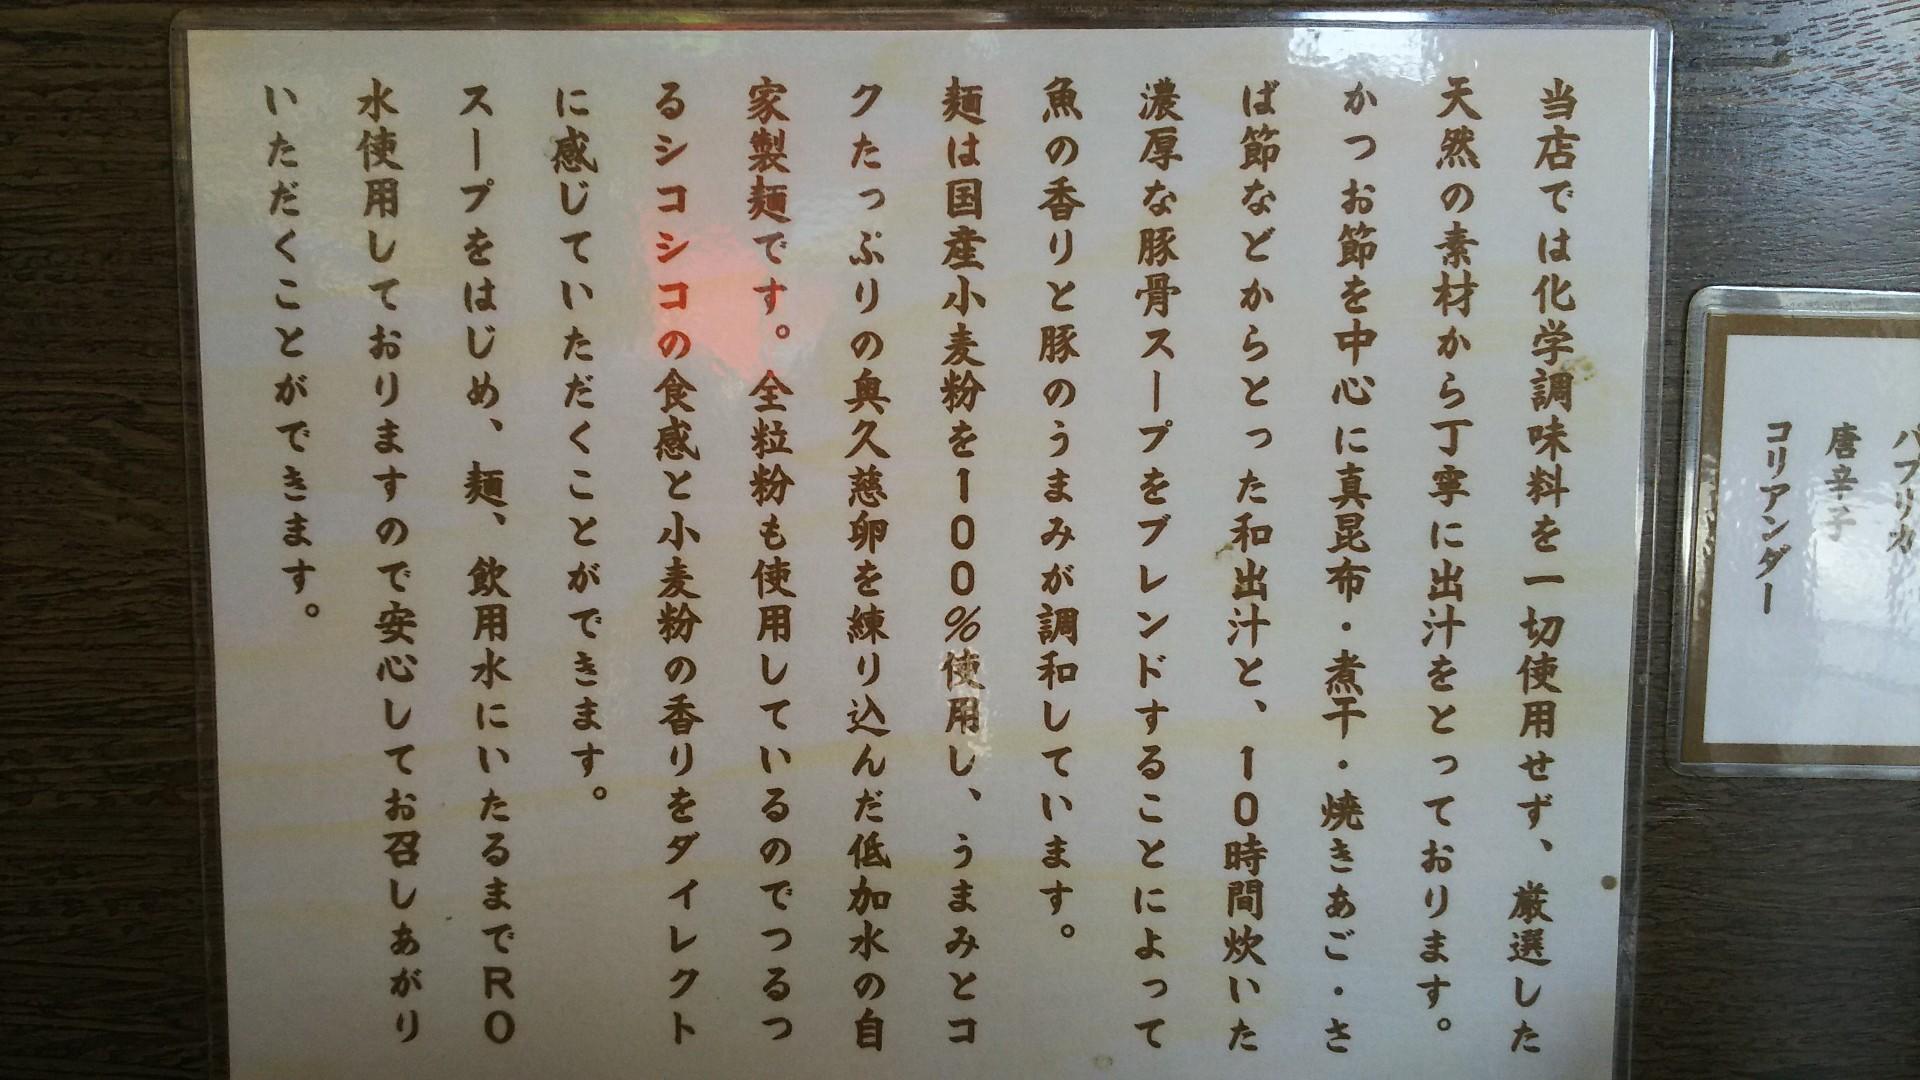 当店では化学調味料を一切使用せず、厳選した
天然の素材から丁寧に出汁をとっております。
かつお節を中心に真昆布・煮干・焼きあご・さ
ば節などからとった和出汁と、10時間炊いた
濃厚な豚骨スープをブレンドすることによって
魚の香りと豚のうまみが調和しています。
麺は国産小麦粉を100%使用し、うまみとコ
クたっぷりの奥久慈卵を練り込んだ低加水の自
家製麺です。全粒粉も使用しているのでつるつ
るシコシコの食感と小麦粉の香りをダイレクト
に感じていただくことができます。
スープをはじめ、麺、飲用水にいたるまでRO
水使用しておりますので安心してお召しあがり
いただくことができます。
パプリカ
唐辛子
コリアンダー